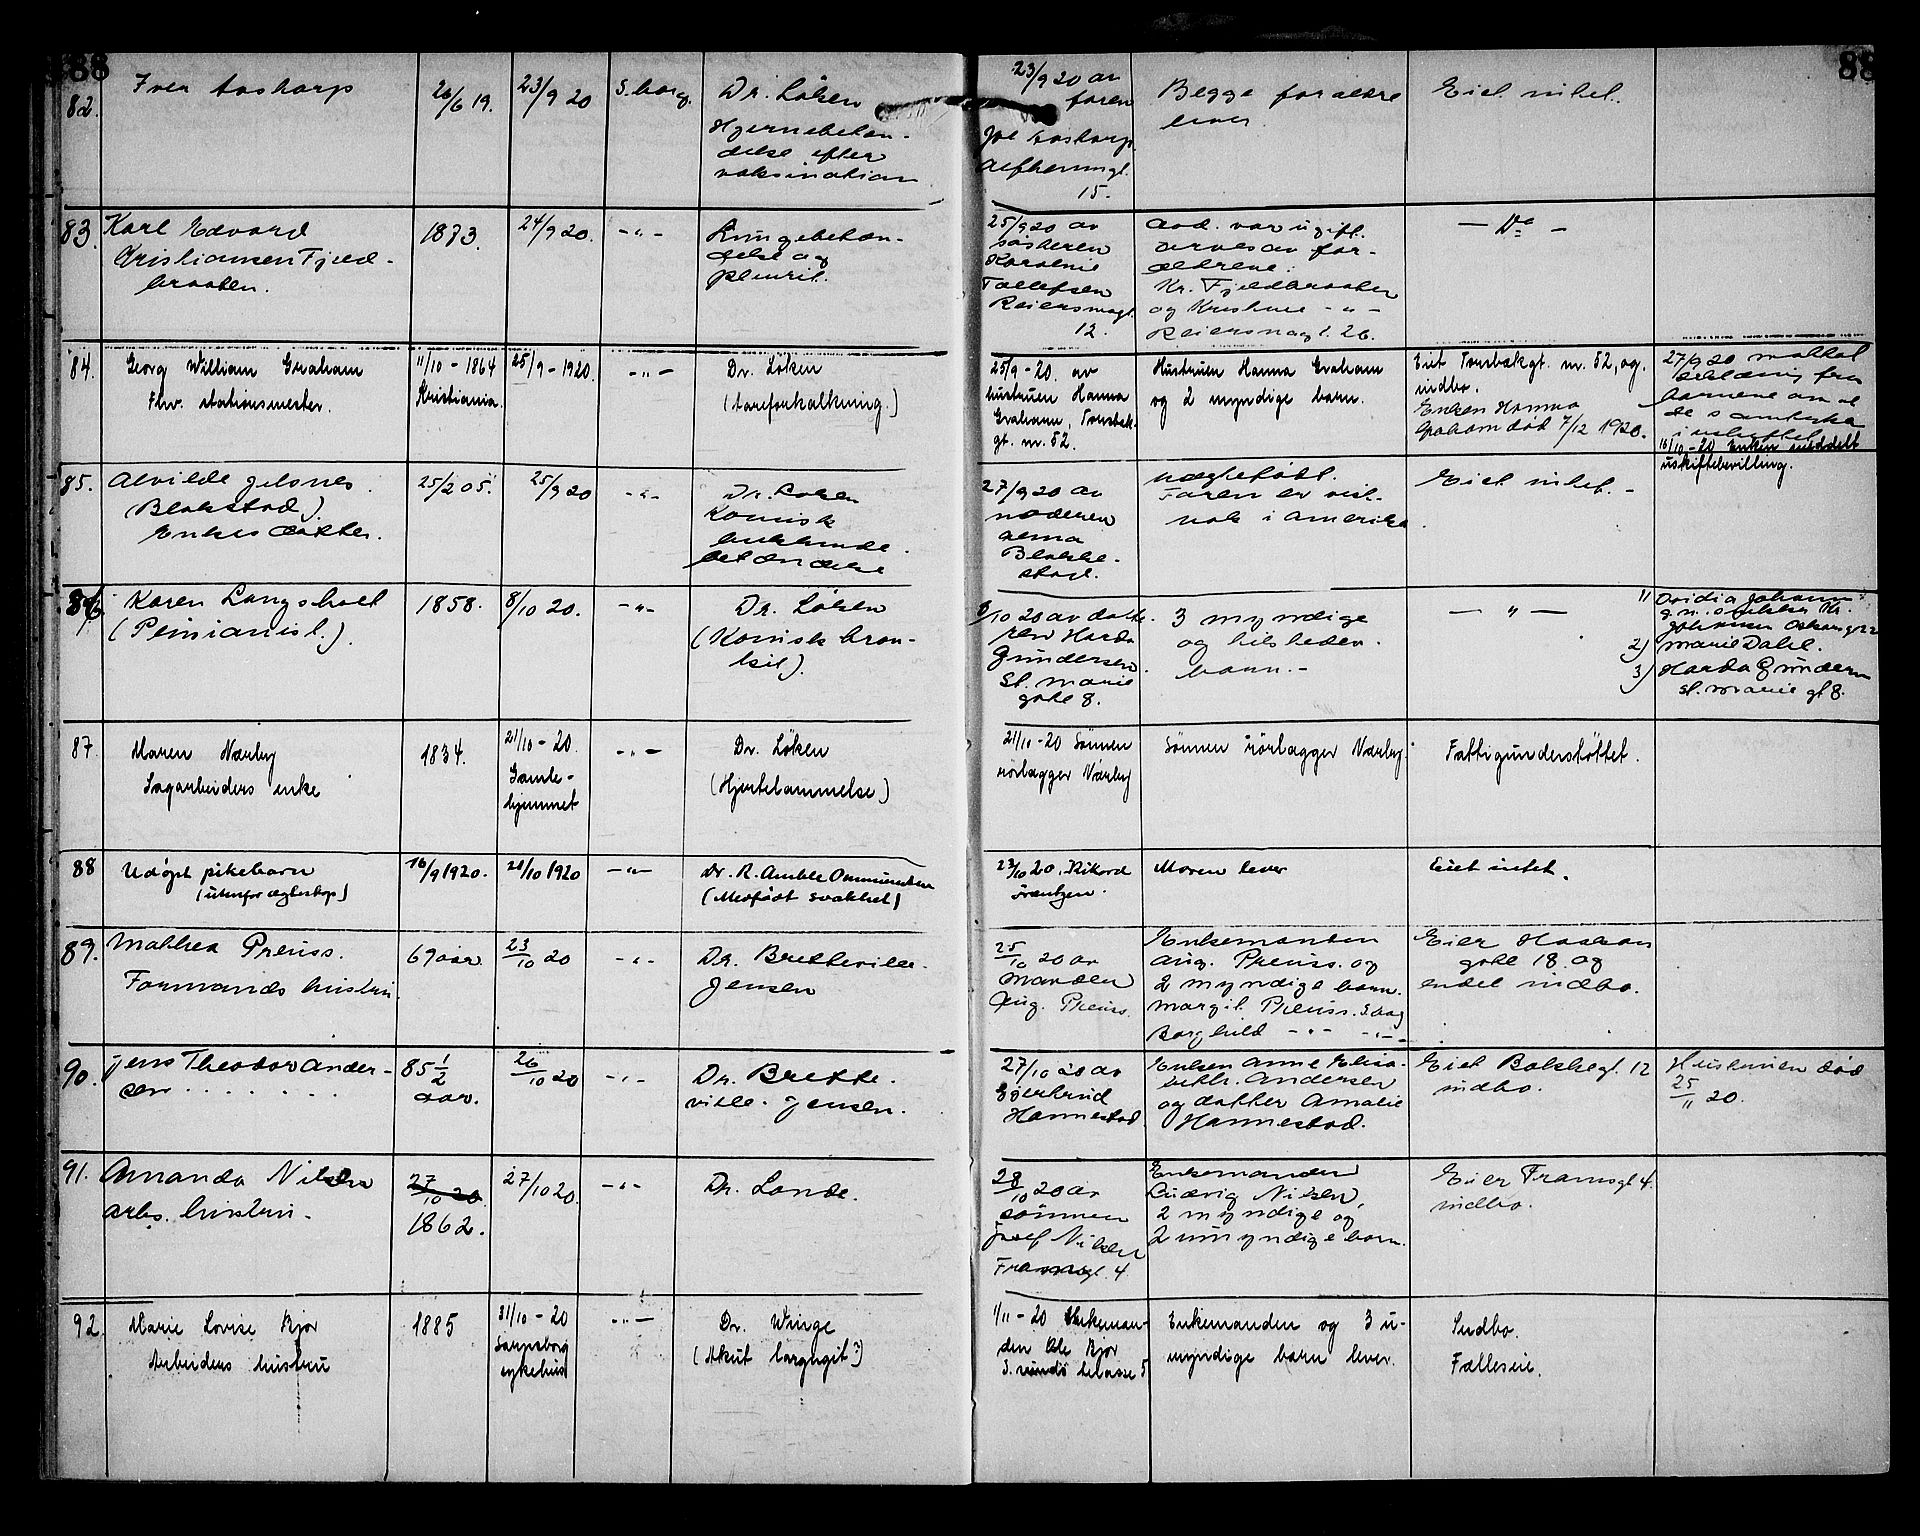 88
88
82.
Iver Aaskorp
26/6 19.
23/9 20
S.borg.
Dr. Löken
Hjernebetæn-
delse efter
vaksination
23/9 20 av
faren
15.
Begge forældre
lever.
Eiet intet.
83.
Karl Edvard
Kristiansen Fjeld-
braaten.
1873.
24/9 20.
-"-
Lungebetæn-
delse og
pleurit.
25/9 20 av
søsteren
Karoline
Tollefsen
12.
Avd. var ugift.
arves av for-
ældrene:
Kr. Fjeldbraaten
og Kristine -"-
26.
- Do -
84.
Georg William Graham
Fhv. stationsmester.
11/10 - 1864
Kristiania.
25/9 - 1920.
-"-
Dr. Löken
(Aareforkalkning.)
25/9 - 20. av
hustruen Hanna
Graham, Torsbæk-
gt. nr. 52.
Hustruen Hanna Graham
og 2 myndige barn.
Eiet Torsbækgt. nr. 52, og
indbo.
Enken Hanna
Graham död 7/12 1920.
27/9 20 mottat
fra
barnene om at
de samtykker
16/10 - 20 Enken meddelt
uskiftebevilling.
85.
Alvilde Jelsnes
(Blakstad)
Enkes datter.
25/2 05.
25/9 20
-"-
Dr. Løken
Kronisk
betændelse
27/9 20 av
moderen
Alma
Blakke-
stad.
Uægtefødt.
Faren er vist-
nok i Amerika
Eiet intet. -
86
Karen Langsholt
(Pensionist.)
1858.
8/10 20.
-"-
Dr. Löken
(Kronisk bron-
kit).
8/10 20 av datte-
ren Harda
Gundersen
St. Marie
gate 8.
3 myndige
og tilstede
barn. -
- " -
1)
2) Marie Dahl.
3) Harda Gundersen
St. Marie gt 8.
87
Maren Nærby
Sagarbeiders enke
1834.
21/10 - 20.
Gamle-
hjemmet
-"-
Dr. Löken
(Hjertelammelse)
21/10 - 20 Sönnen
rörlægger Nærby
Sönnen rörlægger Nærby.
Fattigunderstöttet.
88
Udøpt pikebarn
(utenfor ægteskap)
16/9 1920.
21/10 1920
-"-
Dr. R. Amble Ommundsen
(Medfødt svakhet)
23/10 20. Rikard
Frantzen.
Moren lever
Eiet intet.
89.
Mathea Preuss.
Formands hustru.
69 aar
23/10 20
-"-
Dr. Bretteville-
Jensen
25/10 20 av
manden
Aug. Preuss.
Enkemanden
Aug. Preuss. og
2 myndige barn.
Margit Preuss. S.borg
Borghild -"- -"-
Eier Haakon
gate 18 og
endel indbo.
90.
Jens Theodor Ander-
sen . . . . . .
85 1/2
aar.
26/10 20
-"-
Dr. Brette-
ville-Jensen.
27/10 20 av
Gjertrud
Hannestad
Enken Anne Elisa-
beth. Andersen
og datter Amalie
Hannestad.
Eiet Bakkegt. 12
indbo.
Hustruen død
25/11 20.
91.
Amanda Nilsen
arb. hustru -
27/10 20
1862.
27/10 20.
-"-
Dr. Lande.
28/10 20 av
sønnen
Josef Nilsen
Framsgt. 4
Enkemanden
Ludvig Nilsen,
2 myndige og
2 umyndige barn.
Eier Framsgt 4.
indbo.
92.
Marie Lovise Kjör
Arbeiders hustru
1885
31/10 - 20
Sarpsborg
sykehus
-"-
Dr. Winge
(Akut laryngit?)
1/11 - 20 Enkeman-
den Ole Kjör
Enkemanden og 3 u-
myndige barn lever.
Indbo.
Fælleseie.